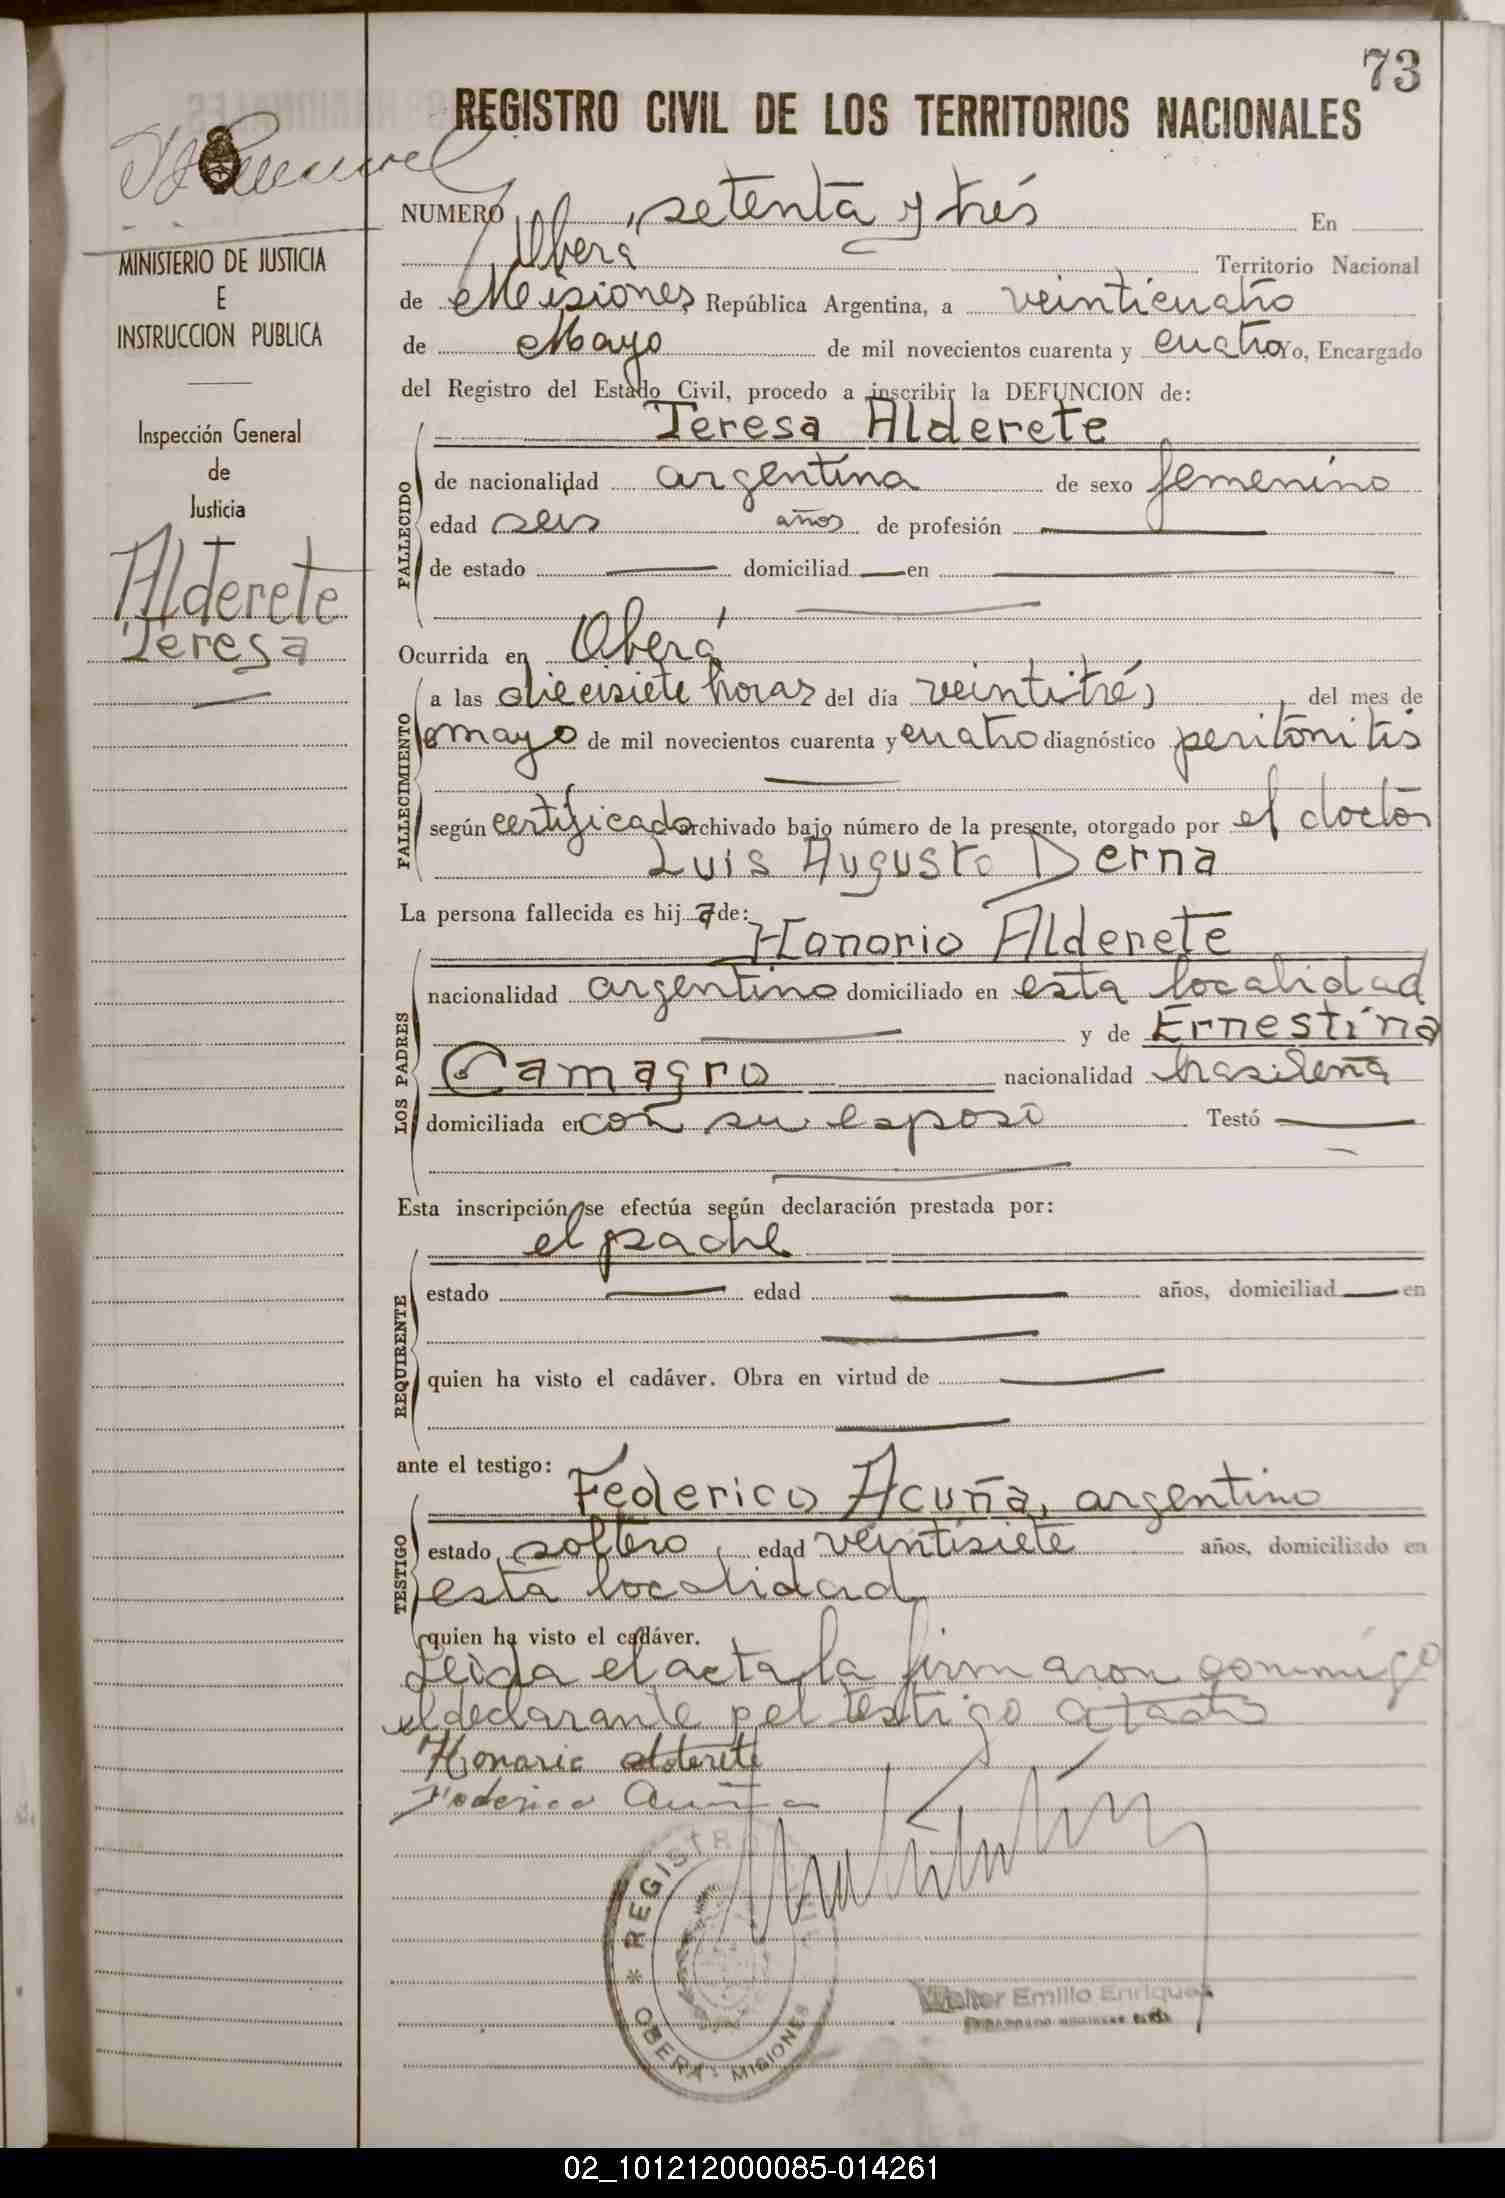 73
REGISTRO CIVIL DE LOS TERRITORIOS NACIONALES
MINISTERIO DE JUSTICIA
E
INSTRUCCION PUBLICA
Inspección General
de
Justicia
Alderete
Teresa
NUMERO setenta y trés En
Oberá Territorio Nacional
de Misiones República Argentina, a veinticuatro
de Mayo de mil novecientos cuarenta y cuatro Yo, Encargado
del Registro del Estado Civil, procedo a inscribir la DEFUNCION de:
Teresa Alderete
FALLECIDO
de nacionalidad argentina de sexo femenino
edad seis años de profesión
de estado domiciliad en
Ocurrida en Oberá
FALLECIMIENTO
a las diecisiete horas del día veintitrés del mes de
mayo de mil novecientos cuarenta y cuatro diagnóstico peritonitis
según certificado archivado bajo número de la presente, otorgado por el doctor
Luis Augusto Derna
La persona fallecida es hija de:
Honorio Alderete
LOS PADRES
nacionalidad argentino domiciliado en esta localidad
y de Ernestina
Camagro nacionalidad brasileña
domiciliada en con su esposo Testó
Esta inscripción se efectúa según declaración prestada por:
el padre
REQUIRENTE
estado edad años, domiciliad en
quien ha visto el cadáver. Obra en virtud de
ante el testigo:
Federico Acuña, argentino
TESTIGO
estado soltero, edad veintisiete años, domiciliado en
esta localidad
quien ha visto el cadáver.
Leida el acta la firmaron conmigo
el declarante y el testigo
Honorio Alderete
Federico Acuña
REGISTRO
OBERA - MISIONES
Walter Emilio Enriquez
02_101212000085-014261